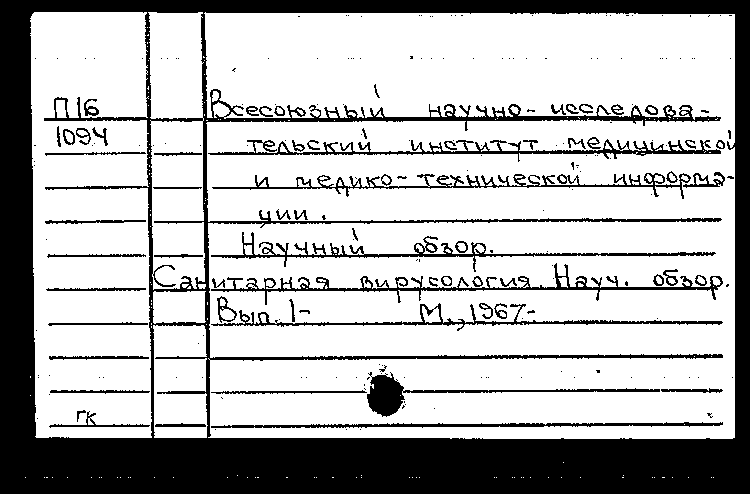 П16 Всесоюзный научно-исследова-
1094 тельский институт медицинской
и медико-технической информа-
ции.
Научный обзор.
Санитарная вирусология. Науч. обзор.
Вып. 1- М., 1967-
гк